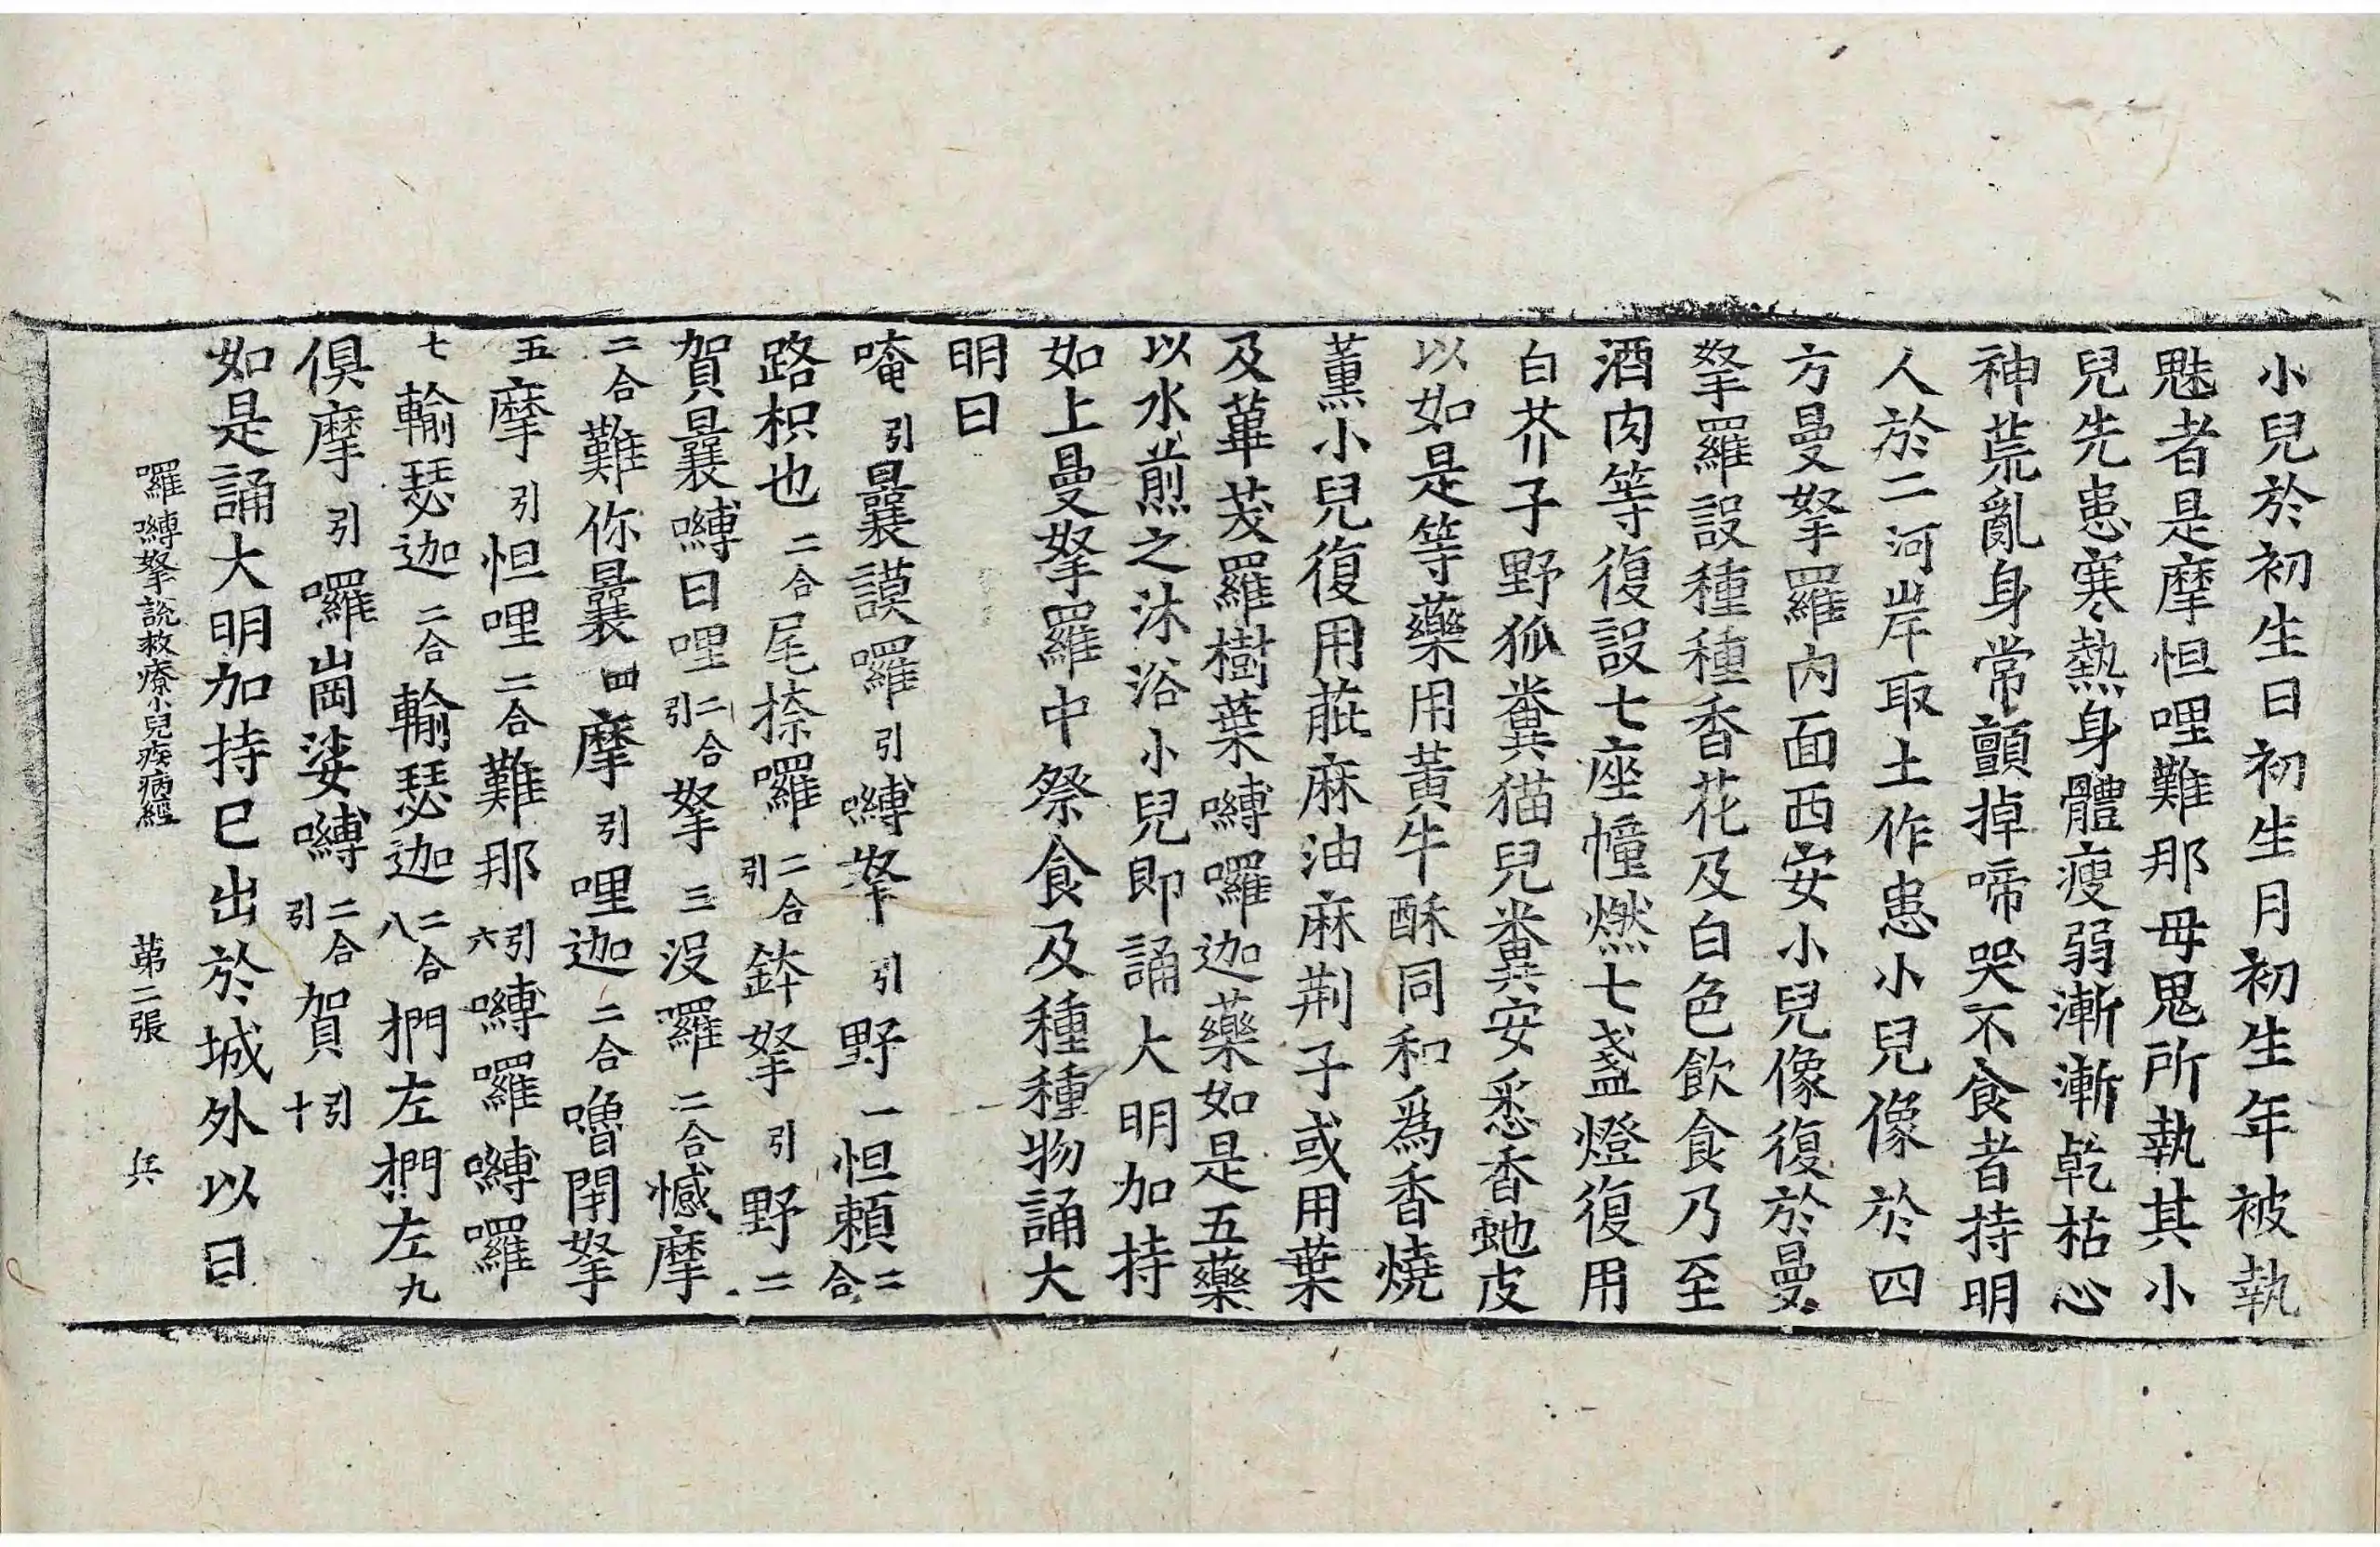 小兒於初生日初生月初生年被執
魅者是摩怛哩難那母鬼所執其小
兒先患寒熱身體瘦弱漸漸乾枯心
神荒亂身常顫掉啼哭不食者持明
人於二河岸取土作患小兒像於四
方曼拏羅內面西安小兒像復於曼
拏羅設種種香花及白色飲食乃至
酒肉等復設七座幢燃七盞燈復用
白芥子野狐糞猫兒糞安悉香虵皮
以如是等藥用黃牛酥同和為香燒
薰小兒復用萞麻油麻荆子或用葉
及蓽茇羅樹葉嚩囉迦藥如是五藥
以水煎之沐浴小兒即誦大明加持
如上曼拏羅中祭食及種種物誦大
明曰
唵引曩謨囉引嚩拏引野一怛賴二合
路枳也二合尾捺囉二合引鉢拏引野二
賀曩嚩日哩二合引拏三沒囉二合憾摩
二合難你曩四摩引哩迦二合嚕閉拏
五摩引怛哩二合難那引六嚩囉嚩囉
七輸瑟迦二合輸瑟迦二合八捫左捫左九
俱摩引囉崗娑嚩二合引賀引十
如是誦大明加持已出於城外以日
囉嚩拏說救療小兒疾病經 第二張 兵